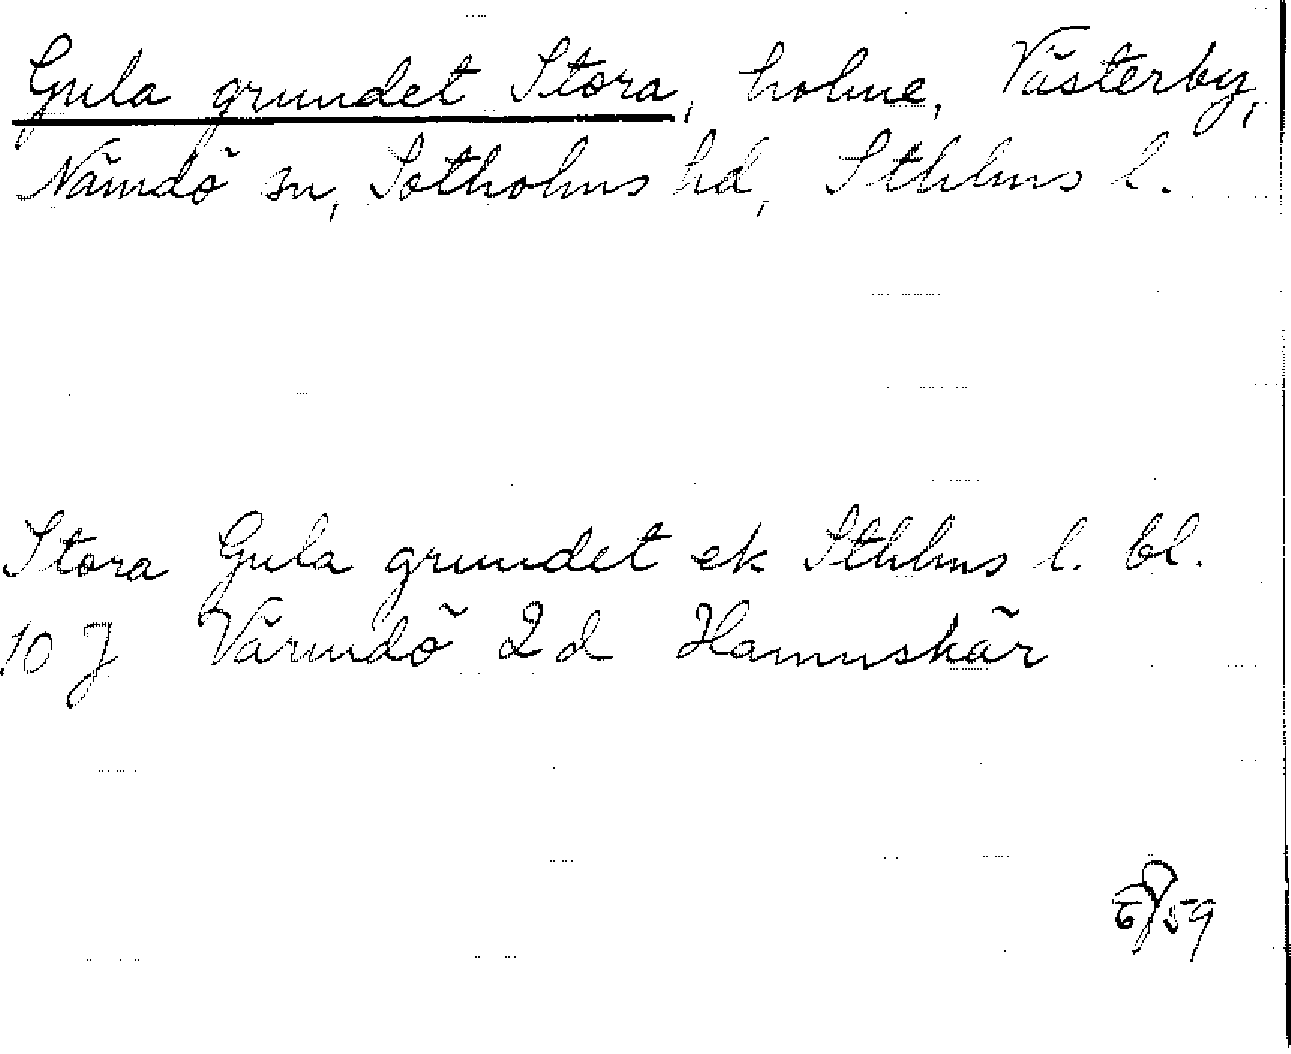 Gula grundet Stora, holme, Västerby,
Nämdö sn, Sotholms hd, Sthlms l.
Stora Gula grundet ek Sthlms l. bl.
10 J Värmdö 2d Hamnskär
59